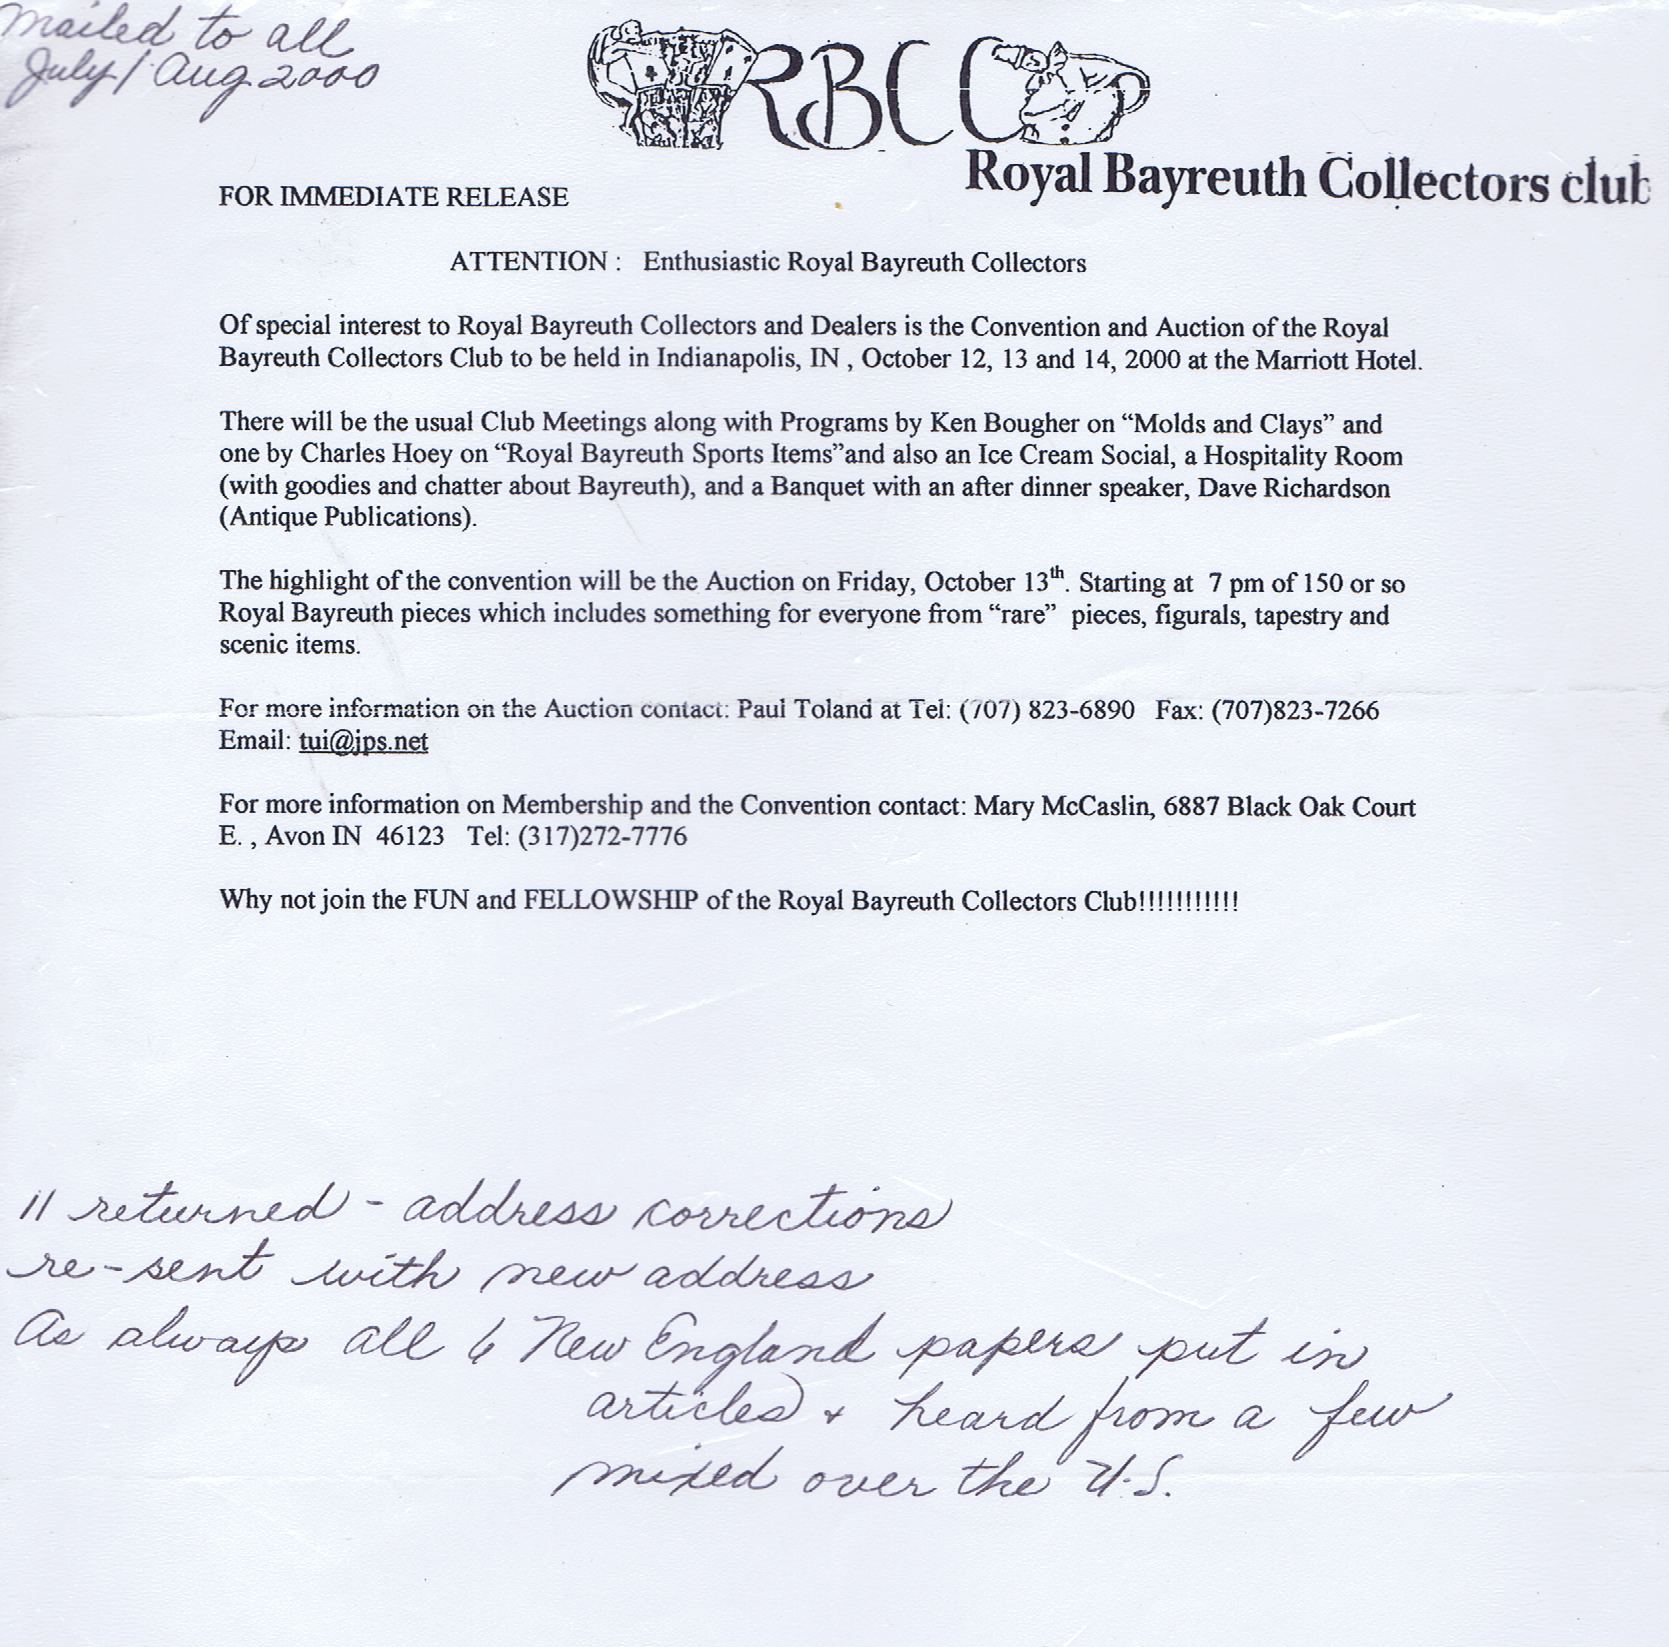 mailed to all
July / Aug 2000
RBCC
Royal Bayreuth Collectors club
FOR IMMEDIATE RELEASE
ATTENTION : Enthusiastic Royal Bayreuth Collectors
Of special interest to Royal Bayreuth Collectors and Dealers is the Convention and Auction of the Royal
Bayreuth Collectors Club to be held in Indianapolis, IN , October 12, 13 and 14, 2000 at the Marriott Hotel.
There will be the usual Club Meetings along with Programs by Ken Bougher on “Molds and Clays” and
one by Charles Hoey on “Royal Bayreuth Sports Items”and also an Ice Cream Social, a Hospitality Room
(with goodies and chatter about Bayreuth), and a Banquet with an after dinner speaker, Dave Richardson
(Antique Publications).
The highlight of the convention will be the Auction on Friday, October 13th. Starting at 7 pm of 150 or so
Royal Bayreuth pieces which includes something for everyone from “rare” pieces, figurals, tapestry and
scenic items.
For more information on the Auction contact: Paul Toland at Tel: (707) 823-6890 Fax: (707)823-7266
Email: tui@jps.net
For more information on Membership and the Convention contact: Mary McCaslin, 6887 Black Oak Court
E. , Avon IN 46123 Tel: (317)272-7776
Why not join the FUN and FELLOWSHIP of the Royal Bayreuth Collectors Club!!!!!!!!!!!
11 returned - address corrections
re-sent with new address
As always all 6 New England papers put in
articles + heard from a few
mixed over the U.S.